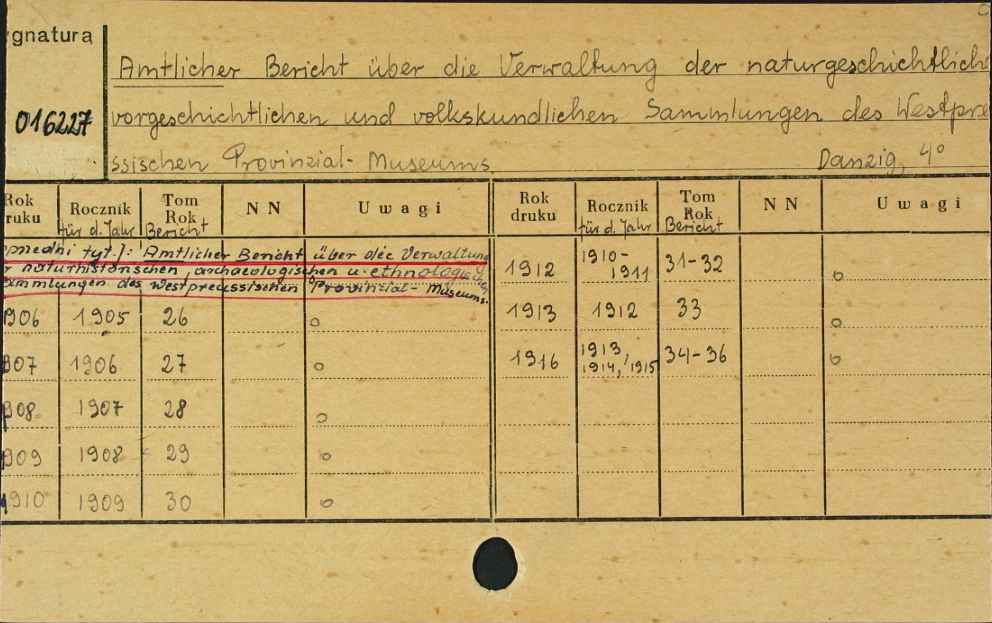 gnatura
Amtlicher Bericht über die Verwaltung der naturgeschichtlich
016227 vorgeschichtlichen und volkskundlichen Sammlungen des Westpre
ssischen Provinzial-Museums Danzig, 4°
Rok ruku Rocznik für d. Jahr Tom Rok Bericht NN Uwagi Rok druku Rocznik für d. Jahr Tom Rok Bericht NN Uwagi
tyt.]: Amtlicher Bericht über die Verwaltung
r naturhistorischen, archaeologischen u. ethnologischen
ammlungen des Westpreussischen Provinzial-Museums.
1912 1910-1911 31-32 o
906 1905 26 o 1913 1912 33 o
907 1906 27 o 1916 1913, 1914, 1915 34-36 o
908 1907 28 o
909 1908 29 o
1910 1909 30 o